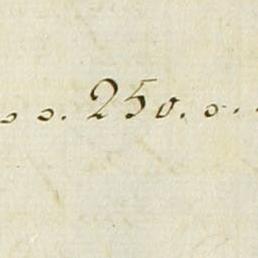 o o. 250. o. .